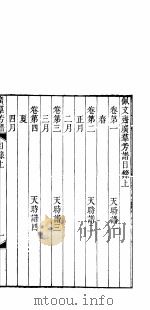 佩文齋廣羣芳譜目錄上
卷第一 天時譜一
春
卷第二 天時譜
正月
二月
卷第三 天時譜三
三月
卷第四 天時譜四
夏
四月
廣羣芳譜 目錄上
www.mtoou.info